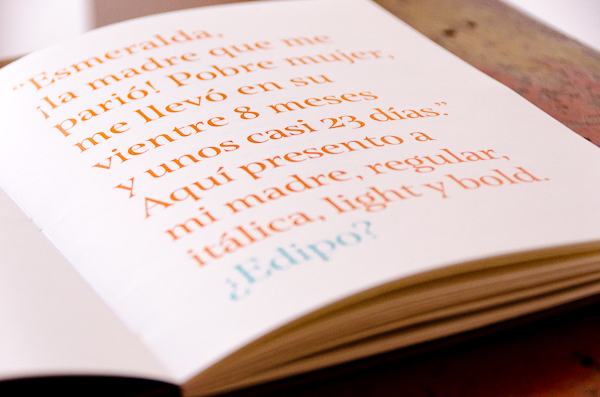 “Esmeralda,
¡la madre que me
parió! Pobre mujer,
me llevó en su
vientre 8 meses
y unos casi 23 días.”
Aquí presento a
mi madre, regular,
itálica, light y bold.
¿Edipo?